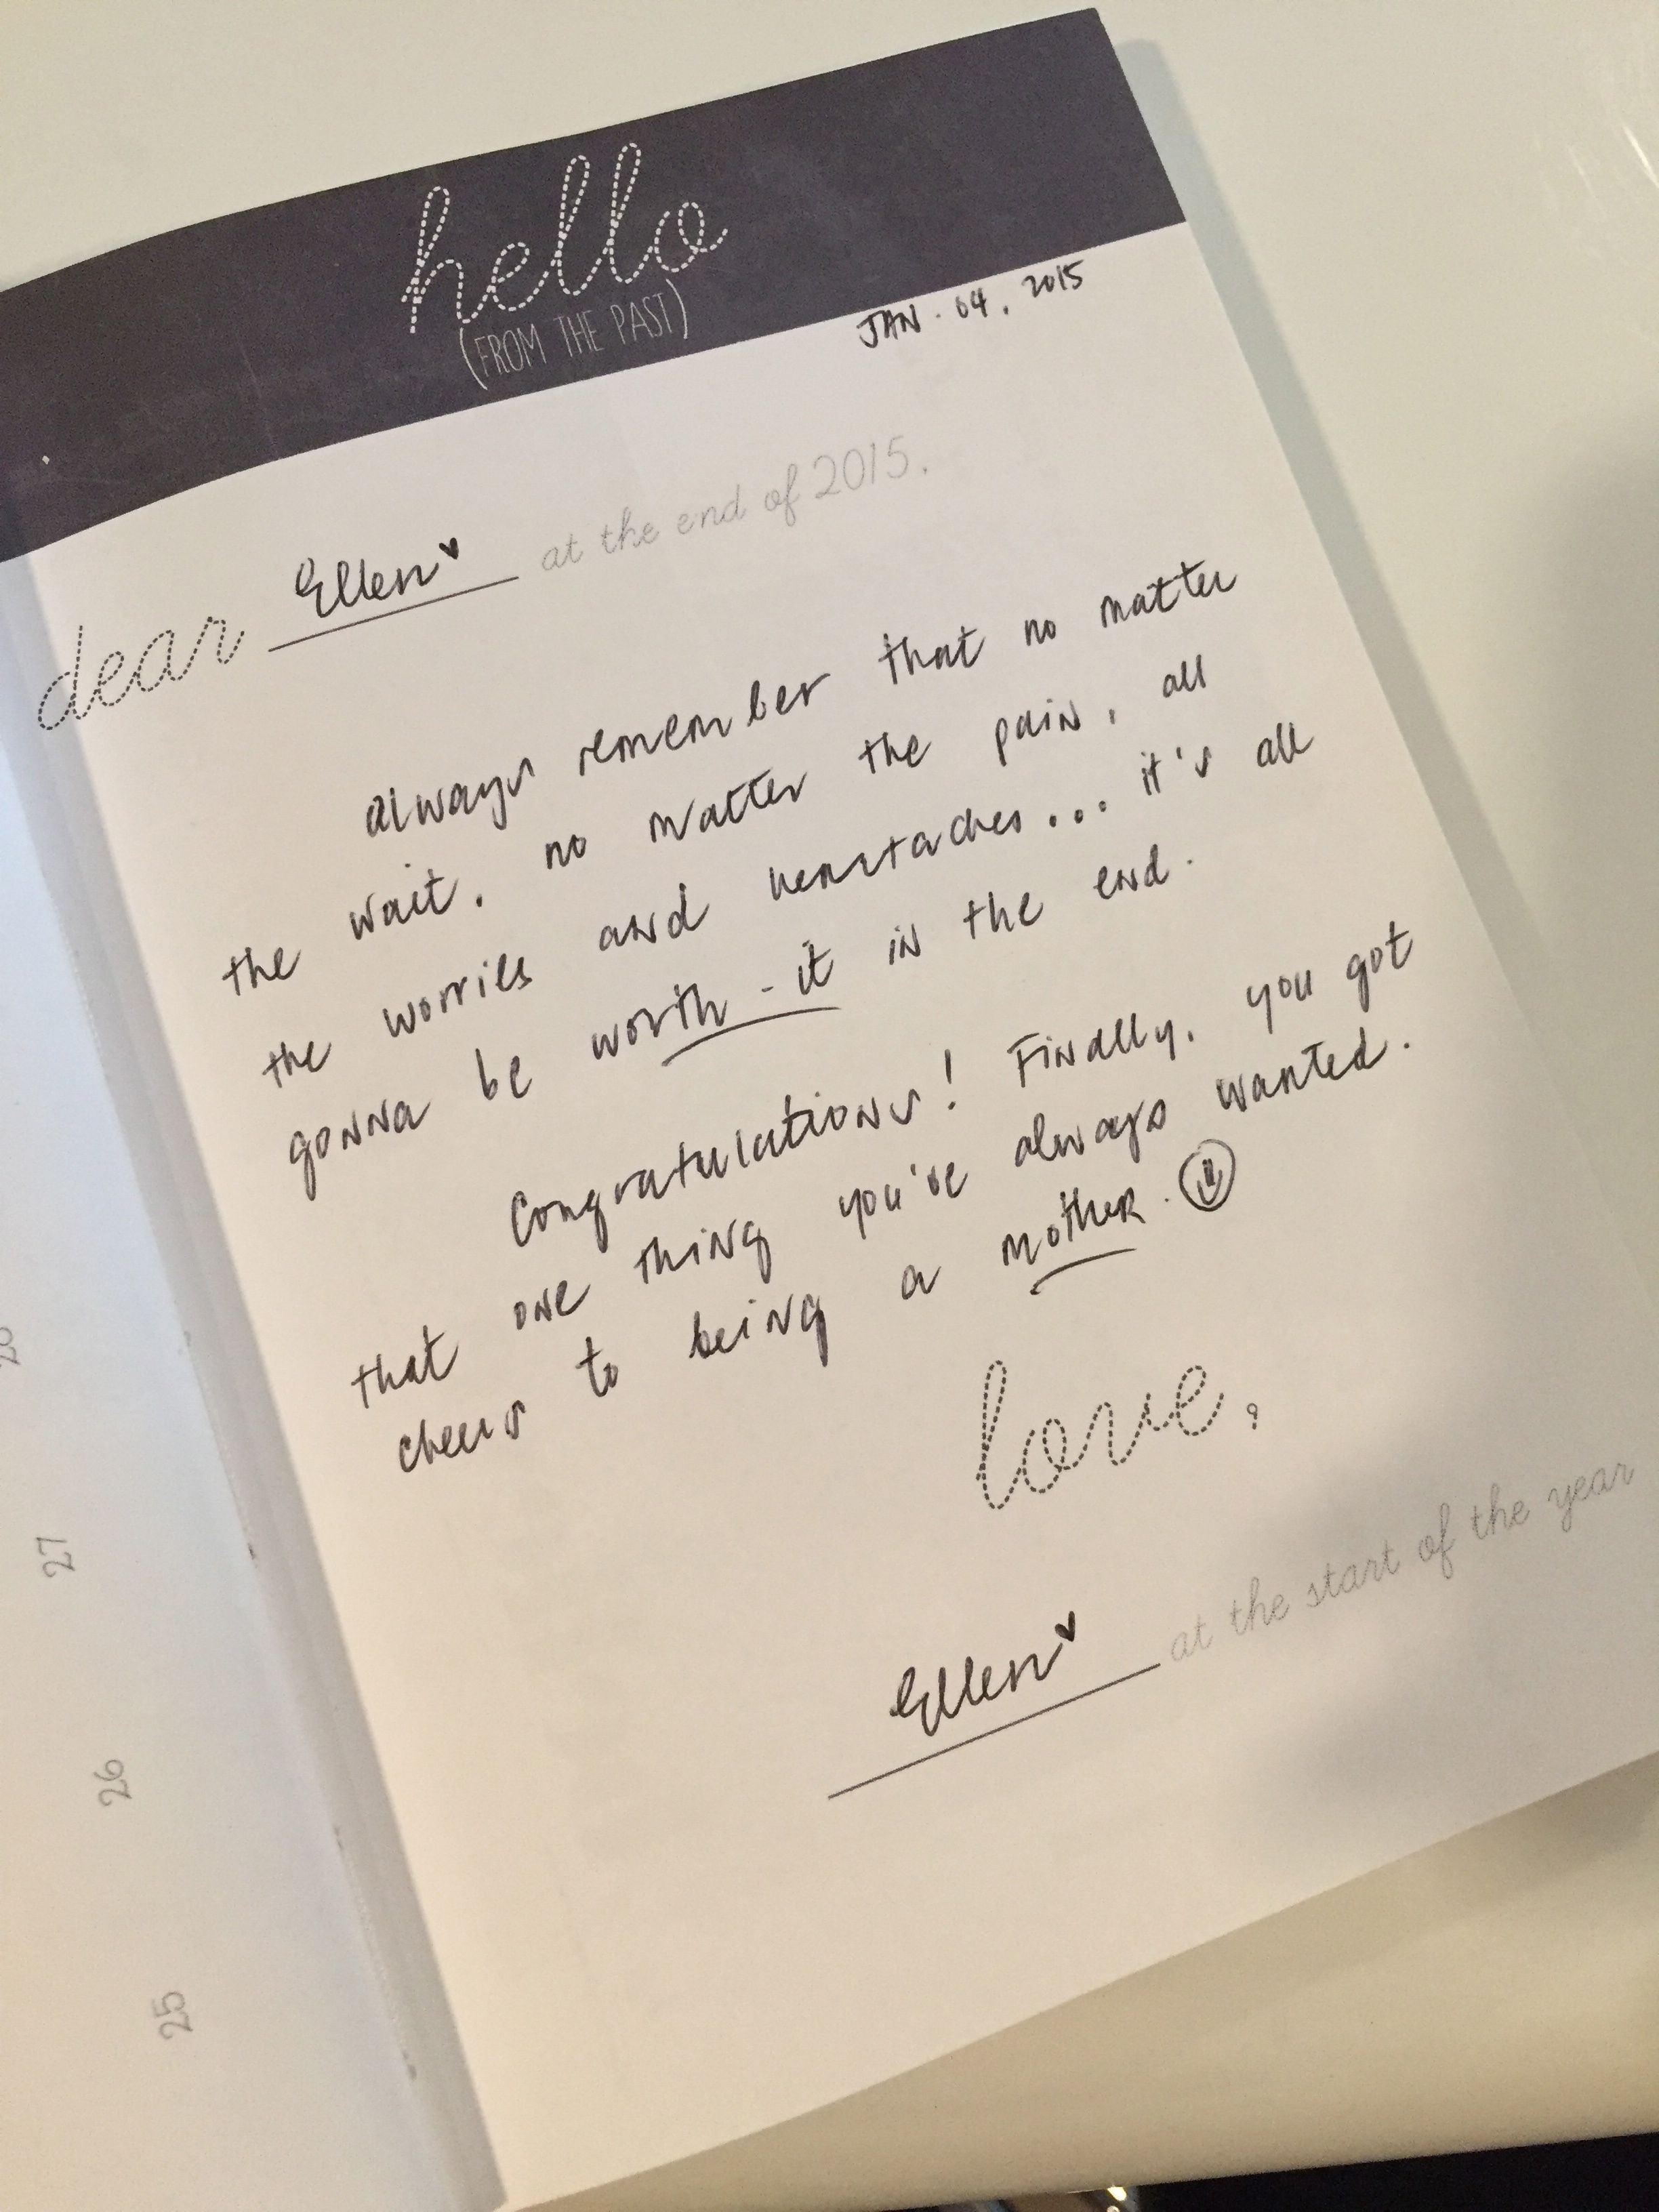 hello
(FROM THE PAST)
JAN. 04, 2015
dear Ellen at the end of 2015.
always remember that no matter
the wait, no matter the pain, all
the worries and heartaches... it's all
gonna be worth-it in the end.
Congratulations! Finally, you got
that one thing you've always wanted.
cheers to being a mother.
love,
Ellen at the start of the year
27
26
25